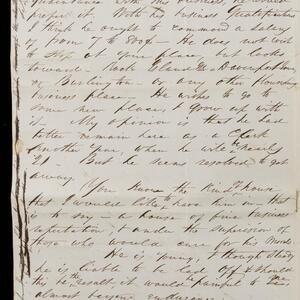 acquaintance with the business, he would
prefer it. With his business Qualifications
I think he ought to command a salary
of from 7 to 800$. He does not wish
to stop at your place, but looks
toward Rock Island & Davenport
or Burlington or any other promising
business place. He wishes to go to
some new place, & grow up with
it. My opinion is that he had
better remain here as a Clerk
another year, when he will be nearly
21. But he seems resolved to get
away.
You know the kind of house
that I would like to have him in that
is to say a house of fair business
reputation, & under the supervision of
those who would care for his morals
He is young, & though steady
he is liable to be led off & should
this be the result it would be painful to me
almost beyond endurance